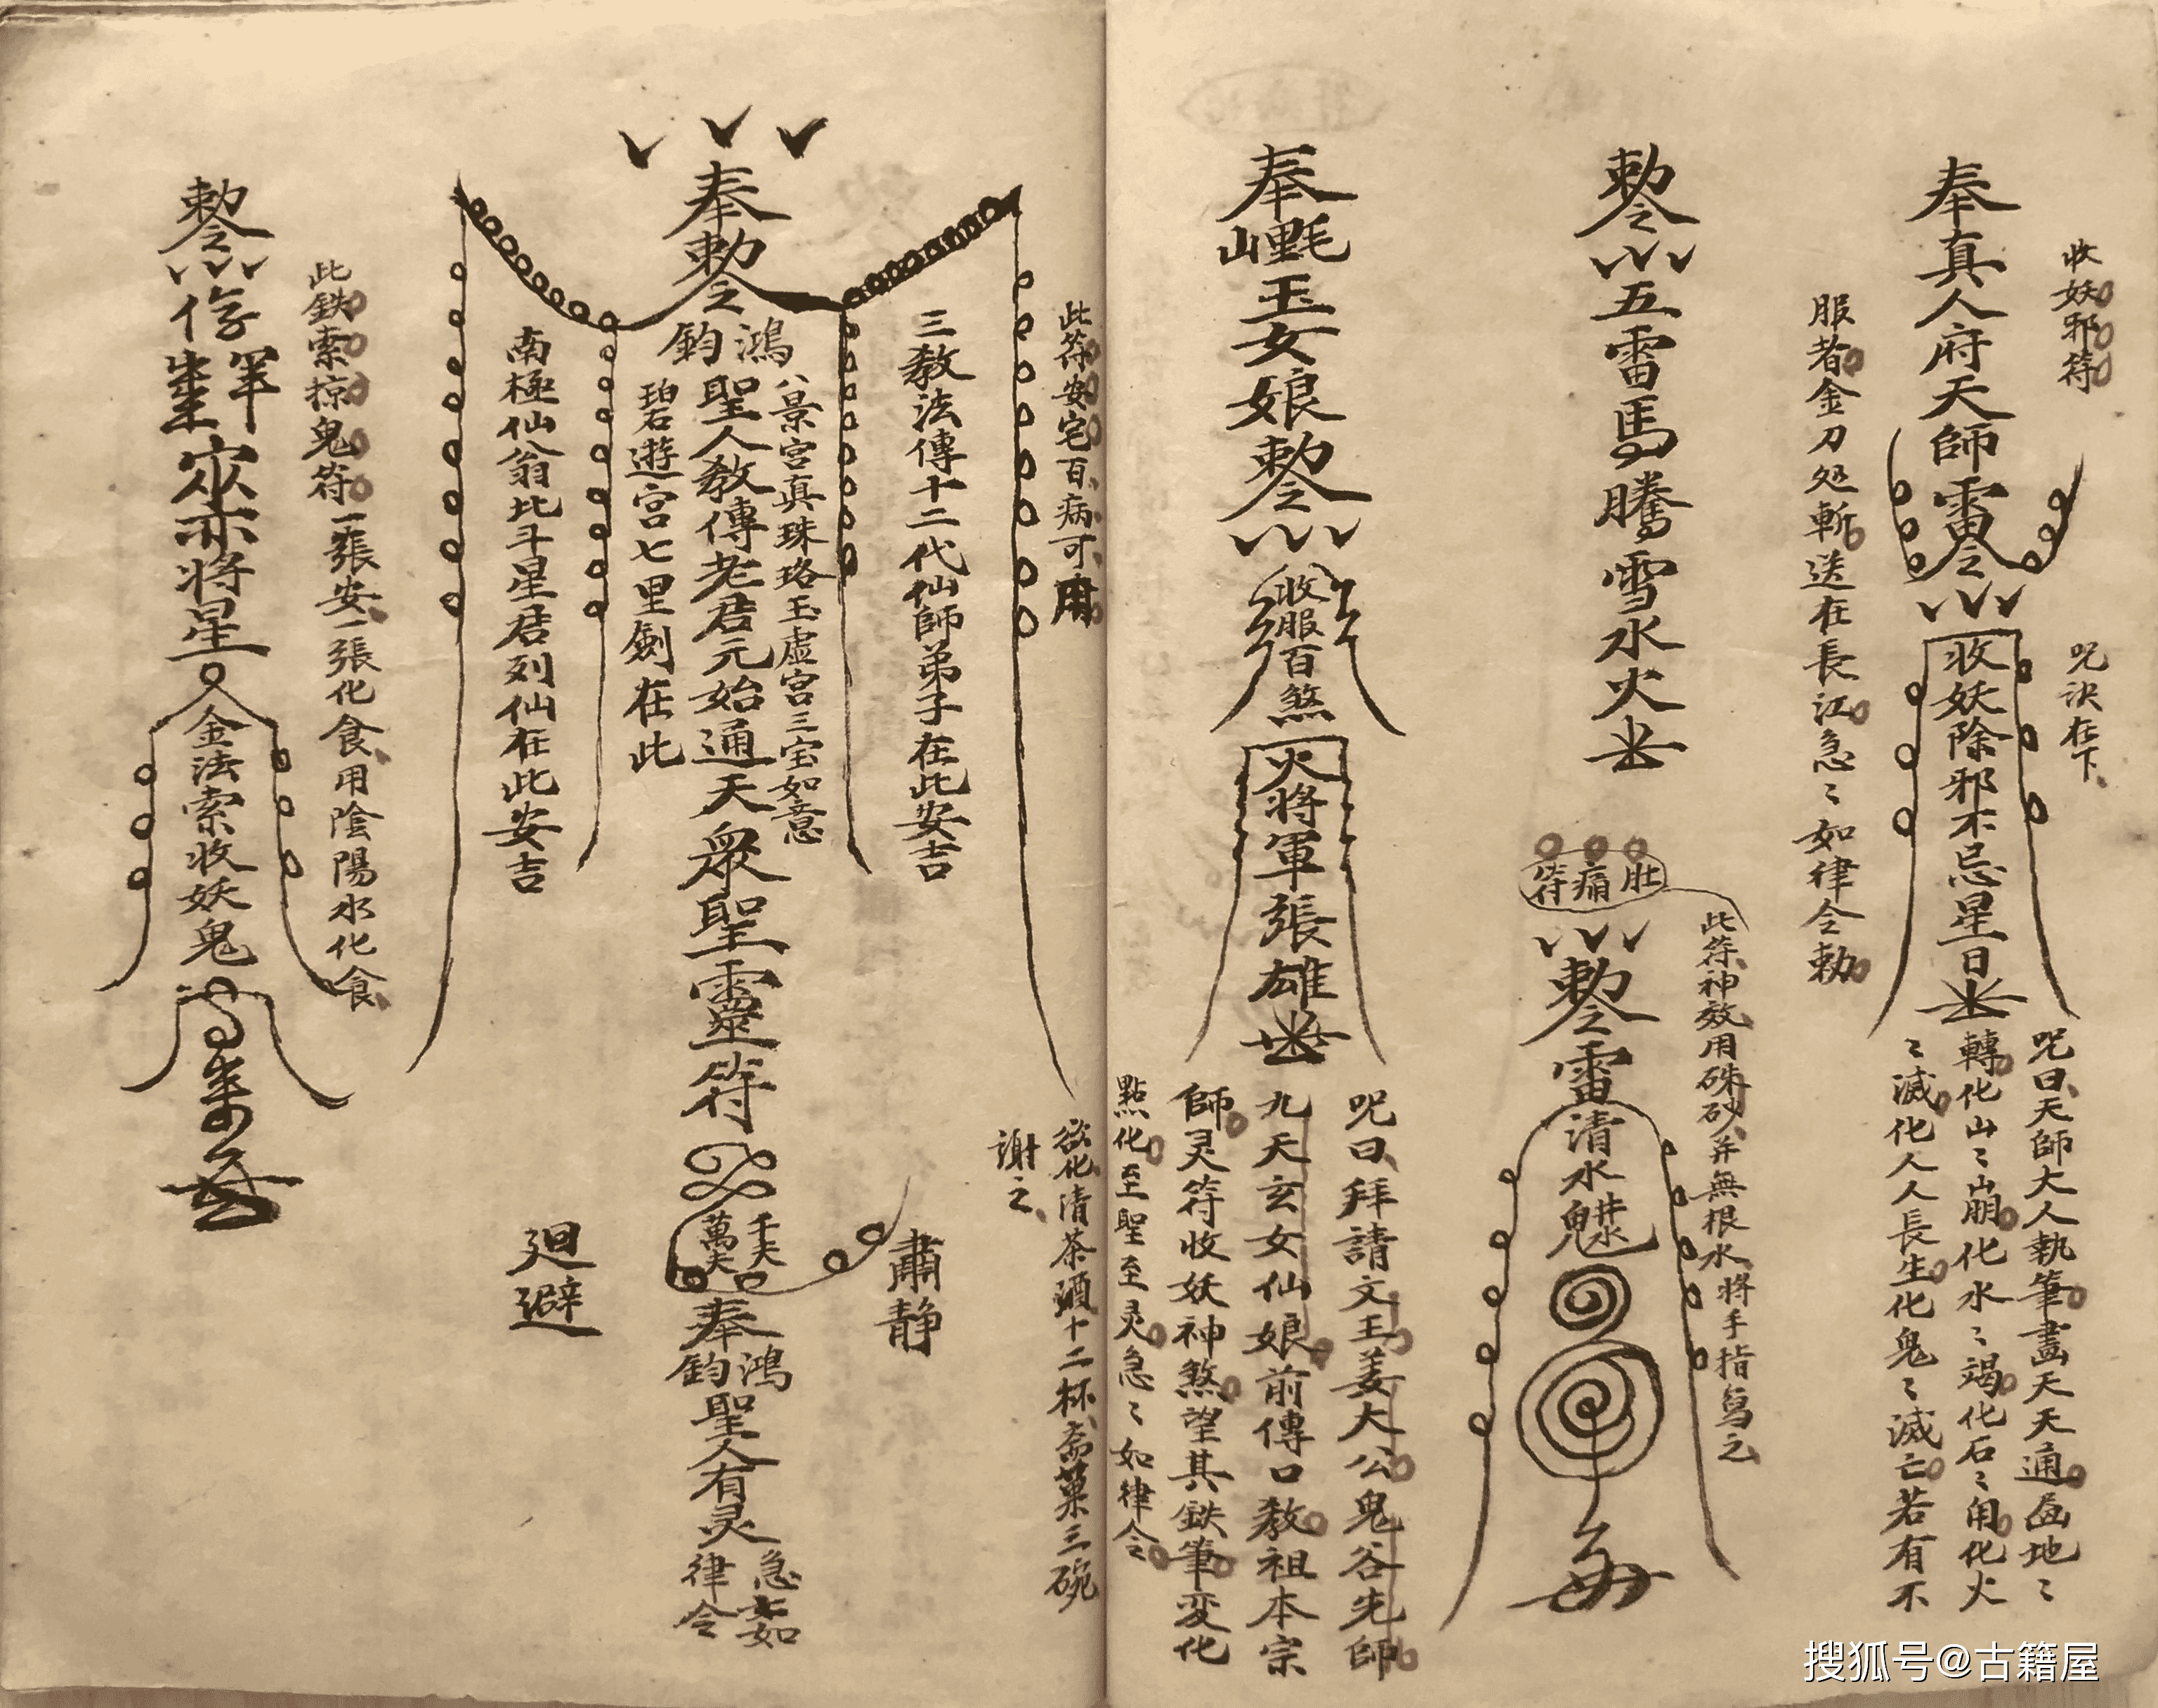 收妖邪符
呪訣在下
奉真人府天師雷令
收妖除邪不忌星日
呪曰天師大人執筆畫天天通畵地〻
轉化山〻山崩化水〻渴化石〻用化火
〻滅化人人長生化鬼〻滅亡若有不
服者金刀処斬送在長江急〻如律令勅
勅令五雷馬騰雪水火
肚痛符
此符神效用硃砂并無根水将手指写之
勅令雷清水
奉
玉女娘勅令
收服百煞
火将軍張雄
呪曰拜請文王姜大公鬼谷先師
九天玄女仙娘前傳口教祖本宗
師灵符收妖神煞望其鉄筆変化
點化至聖至灵急〻如律令
此符安宅百病可用
欲化清茶酒十二杯斋菓三碗
謝之
三教法傳十二代仙師弟子在此安吉
八景宮真珠珞玉虛宮三宝如意
奉勅令鴻鈞聖人教傳老君元始通天眾聖靈符
碧遊宮七里劍在此
南極仙翁比斗星君列仙在此安吉
千夫萬夫
肅静
廻避
奉鴻鈞聖人有灵急急如律令
此鉄索掠鬼符一張安一張化食用陰陽水化食
勅令
将星
金法索收妖鬼
搜狐号@古籍屋